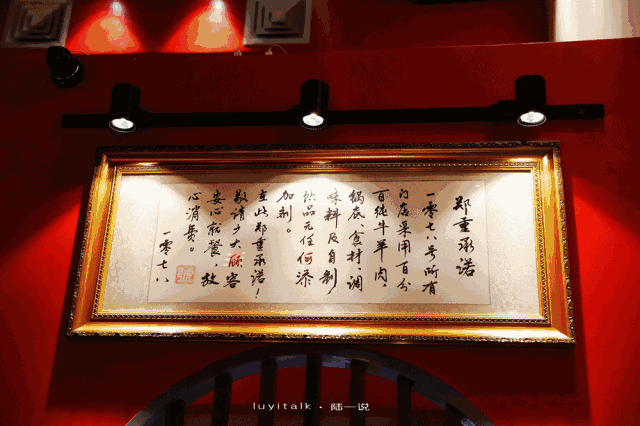 郑重承诺
一零七八号所有
门店采用百分
百纯牛羊肉，
锅底、食材、调
味料及自制
饮品无任何添
加剂。
在此郑重承诺！
敬请广大顾客
安心就餐，放
心消费。
一零七八
luyitalk · 陆一说